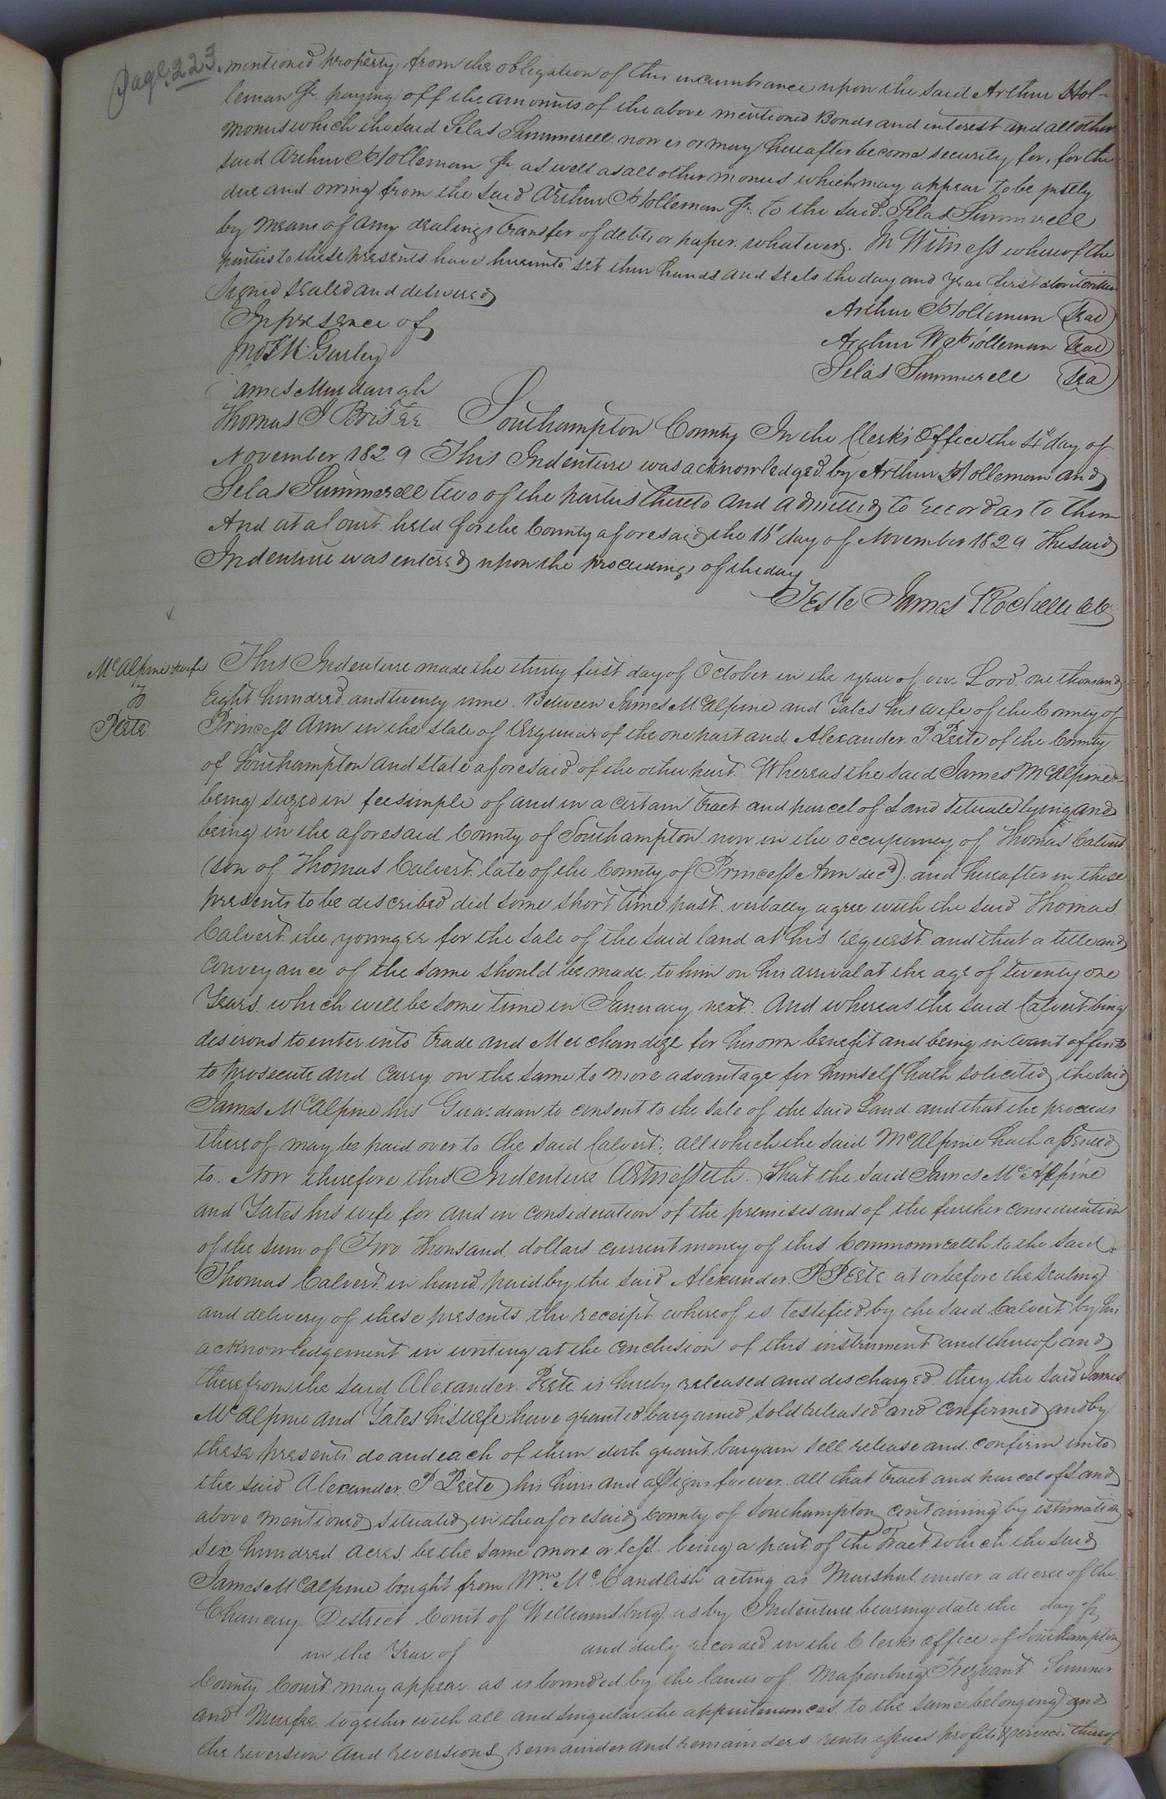 Page 223.
mentioned property from the obligation of this incumbrance upon the said Arthur Hol-
leman Jr. paying off the amounts of the above mentioned Bonds and interest and all other
monies which the said Silas Summerell now is or may hereafter become security for, for the
said Arthur Holleman Jr. as well as all other monies which may appear to be justly
due and owing from the said Arthur Holleman Jr. to the said Silas Summerell
by means of any dealings transfer of debts or paper whatever. In Witness whereof the
parties to these presents have hereunto set their hands and seals the day and year first above written
Signed Sealed and delivered
In presence of
Arthur Holleman (Seal)
Arthur W Holleman (Seal)
Silas Summerell (Sea)
Gurley
James Murdaugh
Thomas J
Southampton County In the Clerk's Office the 4th day of
November 1829 This Indenture was acknowledged by Arthur Holleman and
Silas Summerell two of the parties thereto and admitted to record as to them
And at a Court held for the County aforesaid the 16 day of November 1829 The said
Indenture was entered upon the proceedings of the day
Teste James Rochelle
McAlpine & wife
To
Peete
This Indenture made the thirty first day of October in the year of our Lord one thousand
Eight hundred and twenty nine Between James McAlpine and Yates his wife of the County of
Princess Ann in the state of Virginia of the one part and Alexander P. Peete of the County
of Southampton and State aforesaid of the other part. Whereas the said James McAlpine
being seized in fee simple of and in a certain tract and parcel of Land situate lying and
being in the aforesaid County of Southampton now in the occupancy of Thomas Calvert
(son of Thomas Calvert late of the County of Princess Ann decd) and hereafter in these
presents to be described did some short time past verbally agree with the said Thomas
Calvert the younger for the sale of the said land at his request and that a title and
conveyance of the same should be made to him on his arrival at the age of twenty one
Years which will be some time in January next. And whereas the said Calvert being
desirous to enter into trade and Merchandize for his own benefit and being in want of
to prosecute and carry on the same to more advantage for himself hath solicited the said
James McAlpine his Guardian to consent to the sale of the said Land and that the proceeds
thereof may be paid over to the said Calvert; all which the said McAlpine hath assented
to. Now therefore this Indenture Witnesseth That the said James McAlpine
and Yates his wife for and in consideration of the premises and of the further consideration
of the sum of Two Thousand dollars current money of this Commonwealth to the said
Thomas Calvert in hand paid by the said Alexander P Peete at or before the sealing
and delivery of these presents the receipt whereof is testified by the said Calvert by his
acknowledgement in writing at the conclusion of this instrument and thereof and
therefrom the said Alexander Peete is hereby released and discharged they the said James
McAlpine and Yates his wife have granted bargained sold released and confirmed and by
these presents do and each of them doth grant bargain sell release and confirm unto
the said Alexander P Peete his heirs and assigns forever all that tract and parcel of Land
above mentioned situated in the aforesaid County of Southampton containing by estimation
six hundred acres be the same more or less being a part of the Tract which the said
James McAlpine bought from Wm McCandlish acting as Marshal under a decree of the
Chancery District Court of Williamsburg as by Indenture bearing date the day of
in the Year of and duly recorded in the Clerks Office of Southampton
County Court may appear as is bounded by the lands of Massenburg Trezvant Sumner
and Murfee together with all and singular the appurtenances to the same belonging and
the reversion and reversions remainder and remainders rents issues profits & services thereof